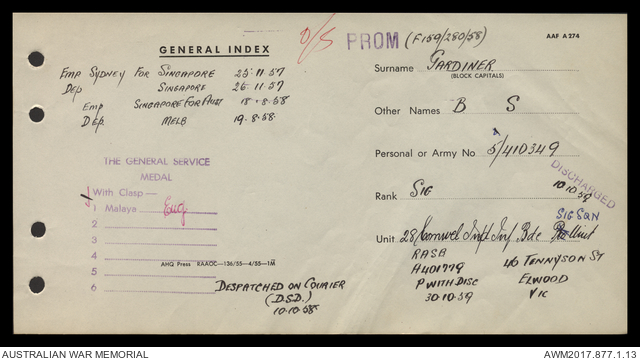 GENERAL INDEX
O/S
PROM (F159/280/58)
AAF A274
Emp Sydney For Singapore 25.11.57
Dep Singapore 26.11.57
Emp Singapore For Aust 18.8.58
Dep. MELB 19.8.58.
Surname GARDINER
(BLOCK CAPITALS)
Other Names B S
Personal or Army No. 5/410349
DISCHARGED
10.10.59
Rank SIG
SIG SQN
Unit 28 Inf. Bde Unit
RASB
A401779
P WITH DISC
30.10.59
46 TENNYSON ST
ELWOOD
VIC
THE GENERAL SERVICE
MEDAL
With Clasp —
1 Malaya Elig
2
3
4
5
6
AHQ Press RAAOC—136/55—4/55—1M
DESPATCHED ON COURIER
(D.S.D.)
10.10.58
AUSTRALIAN WAR MEMORIAL
AWM2017.877.1.13